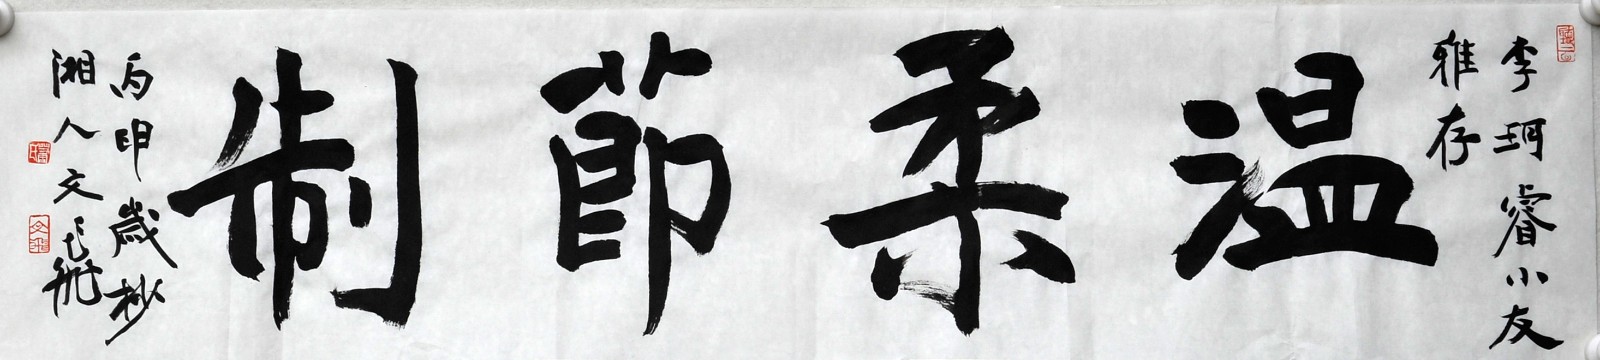 李珂睿小友
雅存
温柔節制
丙申歲杪
湘人文飛